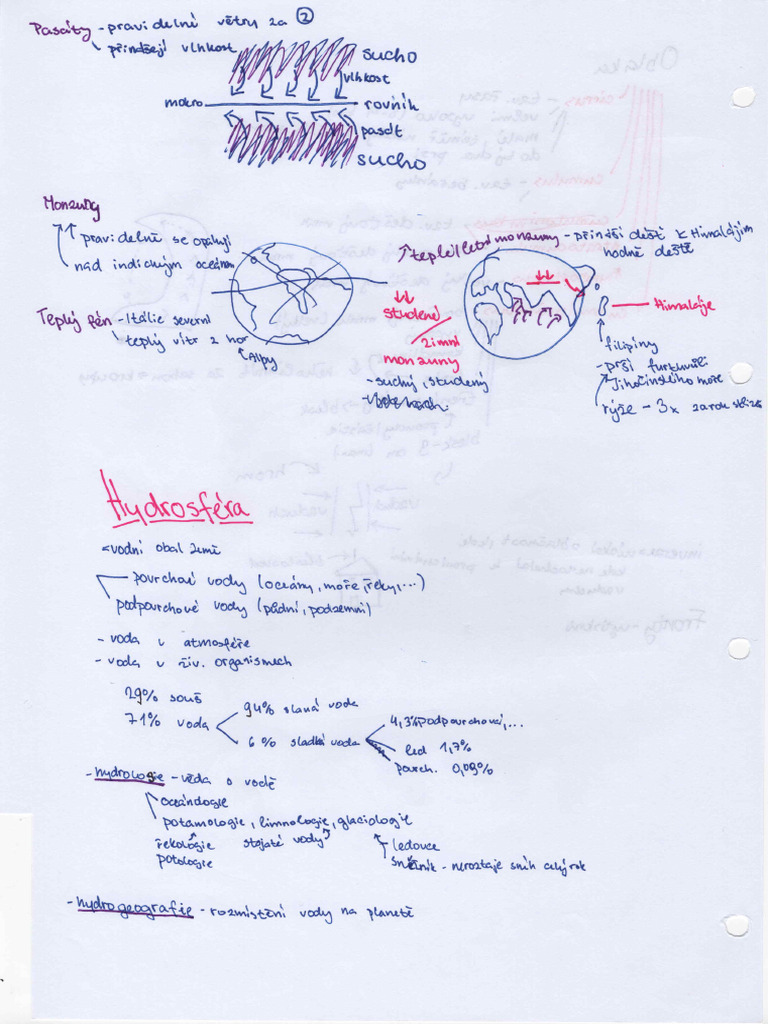 Pasáty - pravidelné větry za ②
přinášejí vlhkost
sucho
vlhkost
mokro
rovník
pasát
sucho
Monzuny
pravidelně se opakují
nad indickým oceánem
Teplý fén - Itálie severní
teplý vítr z hor
Alpy
teplé/letní monzuny - přináší déšť k Himalájím
hodně deště
studené
zimní
monzuny
- suchý, studený
Himaláje
filipíny
- prší furt kvůli
Jihočínského moře
rýže - 3x za rok sklize
Hydrosféra
vodní obal země
povrchové vody (oceány, moře, řeky, ...)
podpovrchové vody (půdní, podzemní)
- voda v atmosféře
- voda v živ. organismech
29% souš
71% voda
94% slaná voda
6% sladká voda
4,3% podpovrchová, ...
led 1,7%
povrch. 0,03%
- hydrologie - věda o vodě
oceánologie
potamologie, limnologie, glaciologie
řekologie stojaté vody
potologie
ledovce
sněžník - neroztaje sníh celý rok
- hydrogeografie - rozmístění vody na planetě